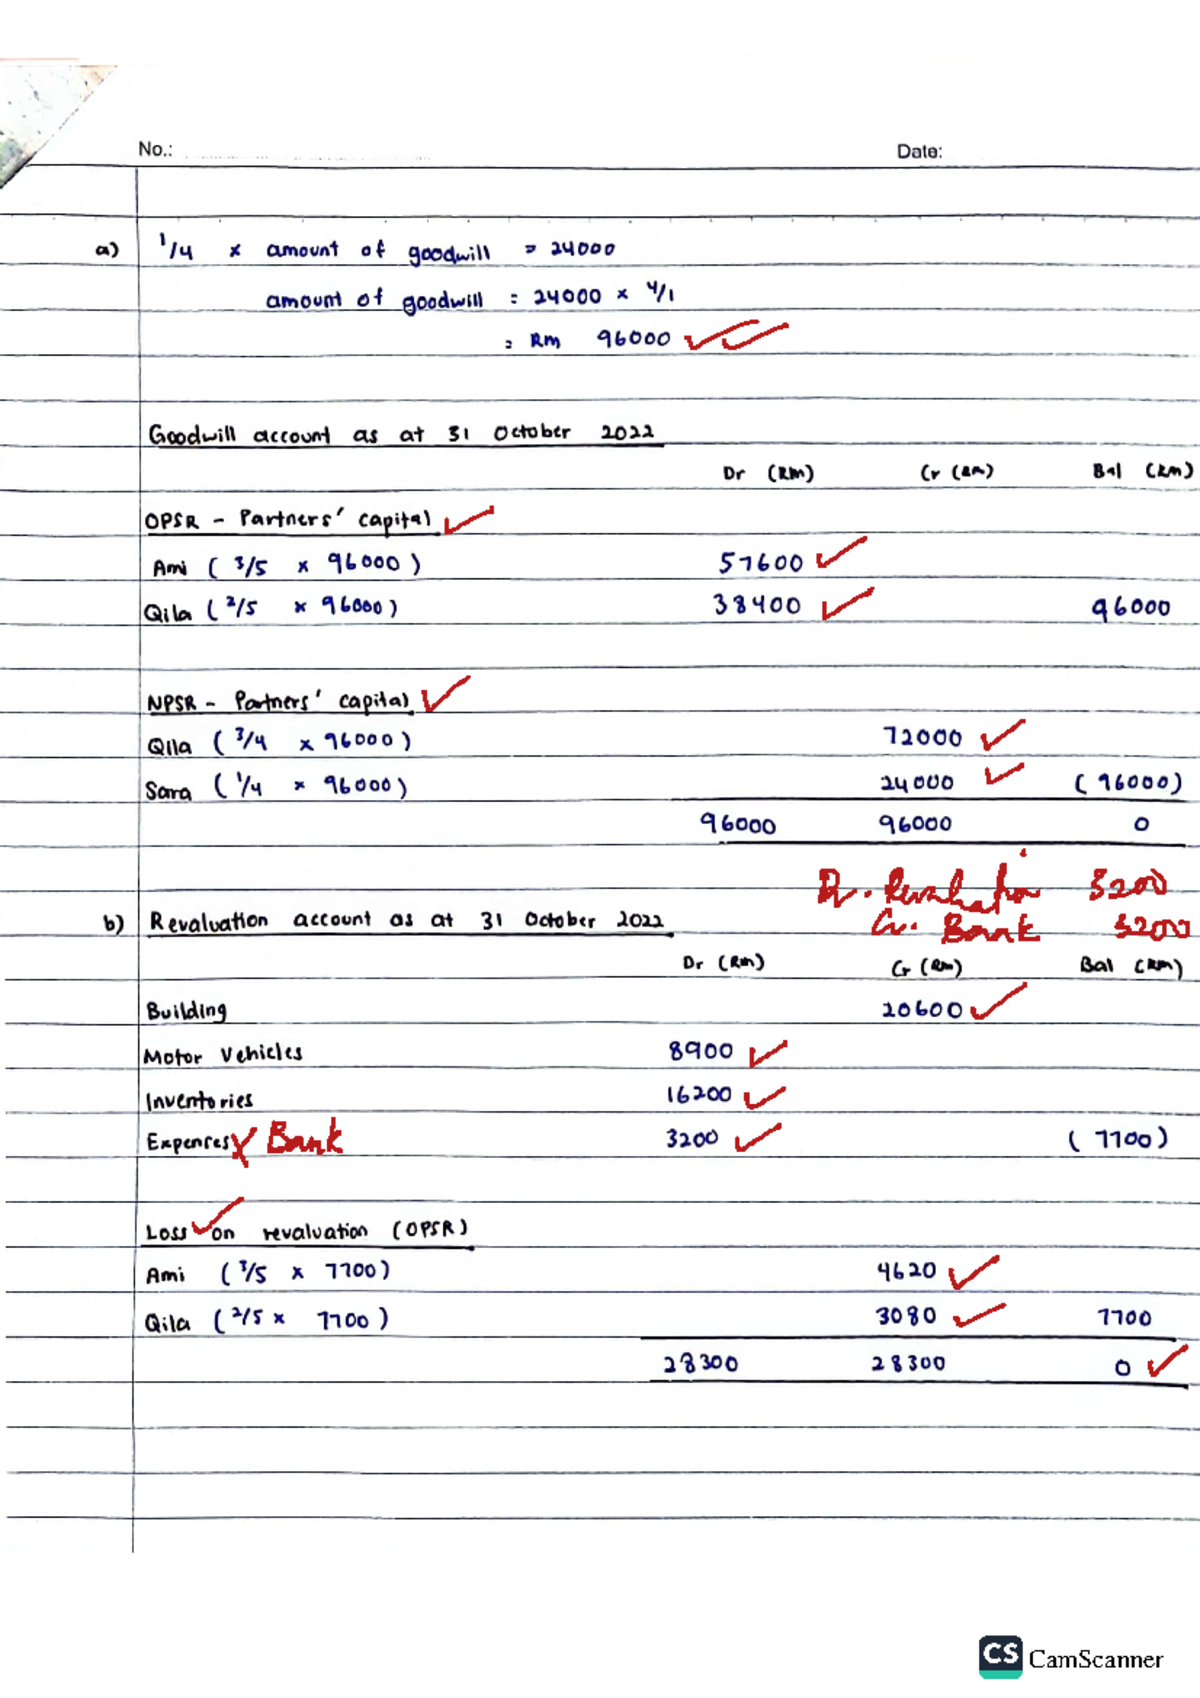 No.: Date:
a) 1/4 x amount of goodwill = 24000
amount of goodwill = 24000 x 4/1
= RM 96000
Goodwill account as at 31 October 2022
Dr (RM) Cr (RM) Bal (RM)
OPSR - Partners' capital
Ami ( 3/5 x 96000 ) 57600
Qila ( 2/5 x 96000 ) 38400 96000
NPSR - Partners' capital
Qila ( 3/4 x 96000 ) 72000
Sara ( 1/4 x 96000 ) 24000 ( 96000 )
96000 96000 0
Dr. Revaluation 3200
Cr. Bank 3200
b) Revaluation account as at 31 October 2022
Dr (RM) Cr (RM) Bal (RM)
Building 20600
Motor Vehicles 8900
Inventories 16200
Expenses X Bank 3200 ( 7700 )
Loss on revaluation (OPSR)
Ami ( 3/5 x 7700 ) 4620
Qila ( 2/5 x 7700 ) 3080 7700
28300 28300 0
CS CamScanner